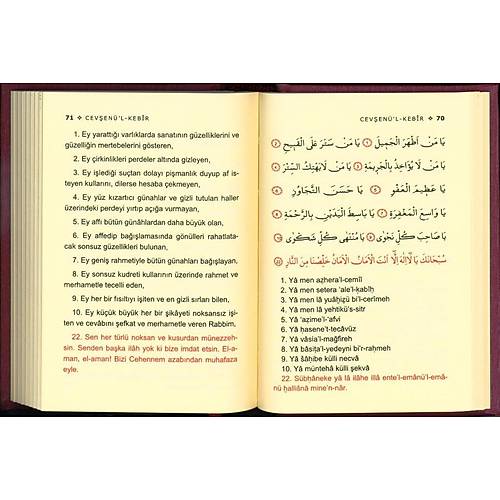 71 ❖ CEVŞENÜ'L-KEBÎR
1. Ey yarattığı varlıklarda sanatının güzelliklerini ve
güzelliğin mertebelerini gösteren,
2. Ey çirkinlikleri perdeler altında gizleyen,
3. Ey işlediği suçtan dolayı pişmanlık duyup af is-
teyen kullarını, dilerse hesaba çekmeyen,
4. Ey yüz kızartıcı günahlar ve gizli tutulan haller
üzerindeki perdeyi yırtıp açığa vurmayan,
5. Ey affı bütün günahlardan daha büyük olan,
6. Ey affedip bağışlamasında gönülleri rahatlata-
cak sonsuz güzellikleri bulunan,
7. Ey geniş rahmetiyle bütün günahları bağışlayan,
8. Ey sonsuz kudreti kullarının üzerinde rahmet ve
merhametle tecelli eden,
9. Ey her bir fısıltıyı işiten ve en gizli sırları bilen,
10. Ey küçük büyük her bir şikâyeti noksansız işi-
ten ve cevabını şefkat ve merhametle veren Rabbim.
22. Sen her türlü noksan ve kusurdan münezzeh-
sin. Senden başka ilâh yok ki bize imdat etsin. El-a-
man, el-aman! Bizi Cehennem azabından muhafaza
eyle.
CEVŞENÜ'L-KEBÎR ❖ 70
يَا مَنْ اَظْهَرَ الْجَمِيلَ ١ يَا مَنْ سَتَرَ عَلَى الْقَبِيحِ ٢
يَا مَنْ لَا يُؤَاخِذُ بِالْجَرِيمَةِ ٣ يَا مَنْ لَا يَهْتِكُ السِّتْرَ ٤
يَا عَظِيمَ الْعَفْوِ ٥ يَا حَسَنَ التَّجَاوُزِ ٦
يَا وَاسِعَ الْمَغْفِرَةِ ٧ يَا بَاسِطَ الْيَدَيْنِ بِالرَّحْمَةِ ٨
يَا صَاحِبَ كُلِّ نَجْوٰى ٩ يَا مُنْتَهٰى كُلِّ شَكْوٰى ١٠
سُبْحَانَكَ يَا لَا اِلٰهَ اِلَّا اَنْتَ الْاَمَانُ الْاَمَانُ خَلِّصْنَا مِنَ النَّارِ ٢٢
1. Yâ men aẓhera'l-cemîl
2. Yâ men setera 'ale'l-ḳabîḥ
3. Yâ men lâ yuâḫiẕü bi'l-cerîmeh
4. Yâ men lâ yehtikü's-sitr
5. Yâ 'aẓîme'l-'afvi
6. Yâ ḥasene't-tecâvüz
7. Yâ vâsia'l-mağfireh
8. Yâ bâsiṭa'l-yedeyni bi'r-raḥmeh
9. Yâ ṣâḥibe külli necvâ
10. Yâ müntehâ külli şekvâ
22. Sübḥâneke yâ lâ ilâhe illâ ente'l-emânü'l-emâ-
nü ḫalliṣnâ mine'n-nâr.